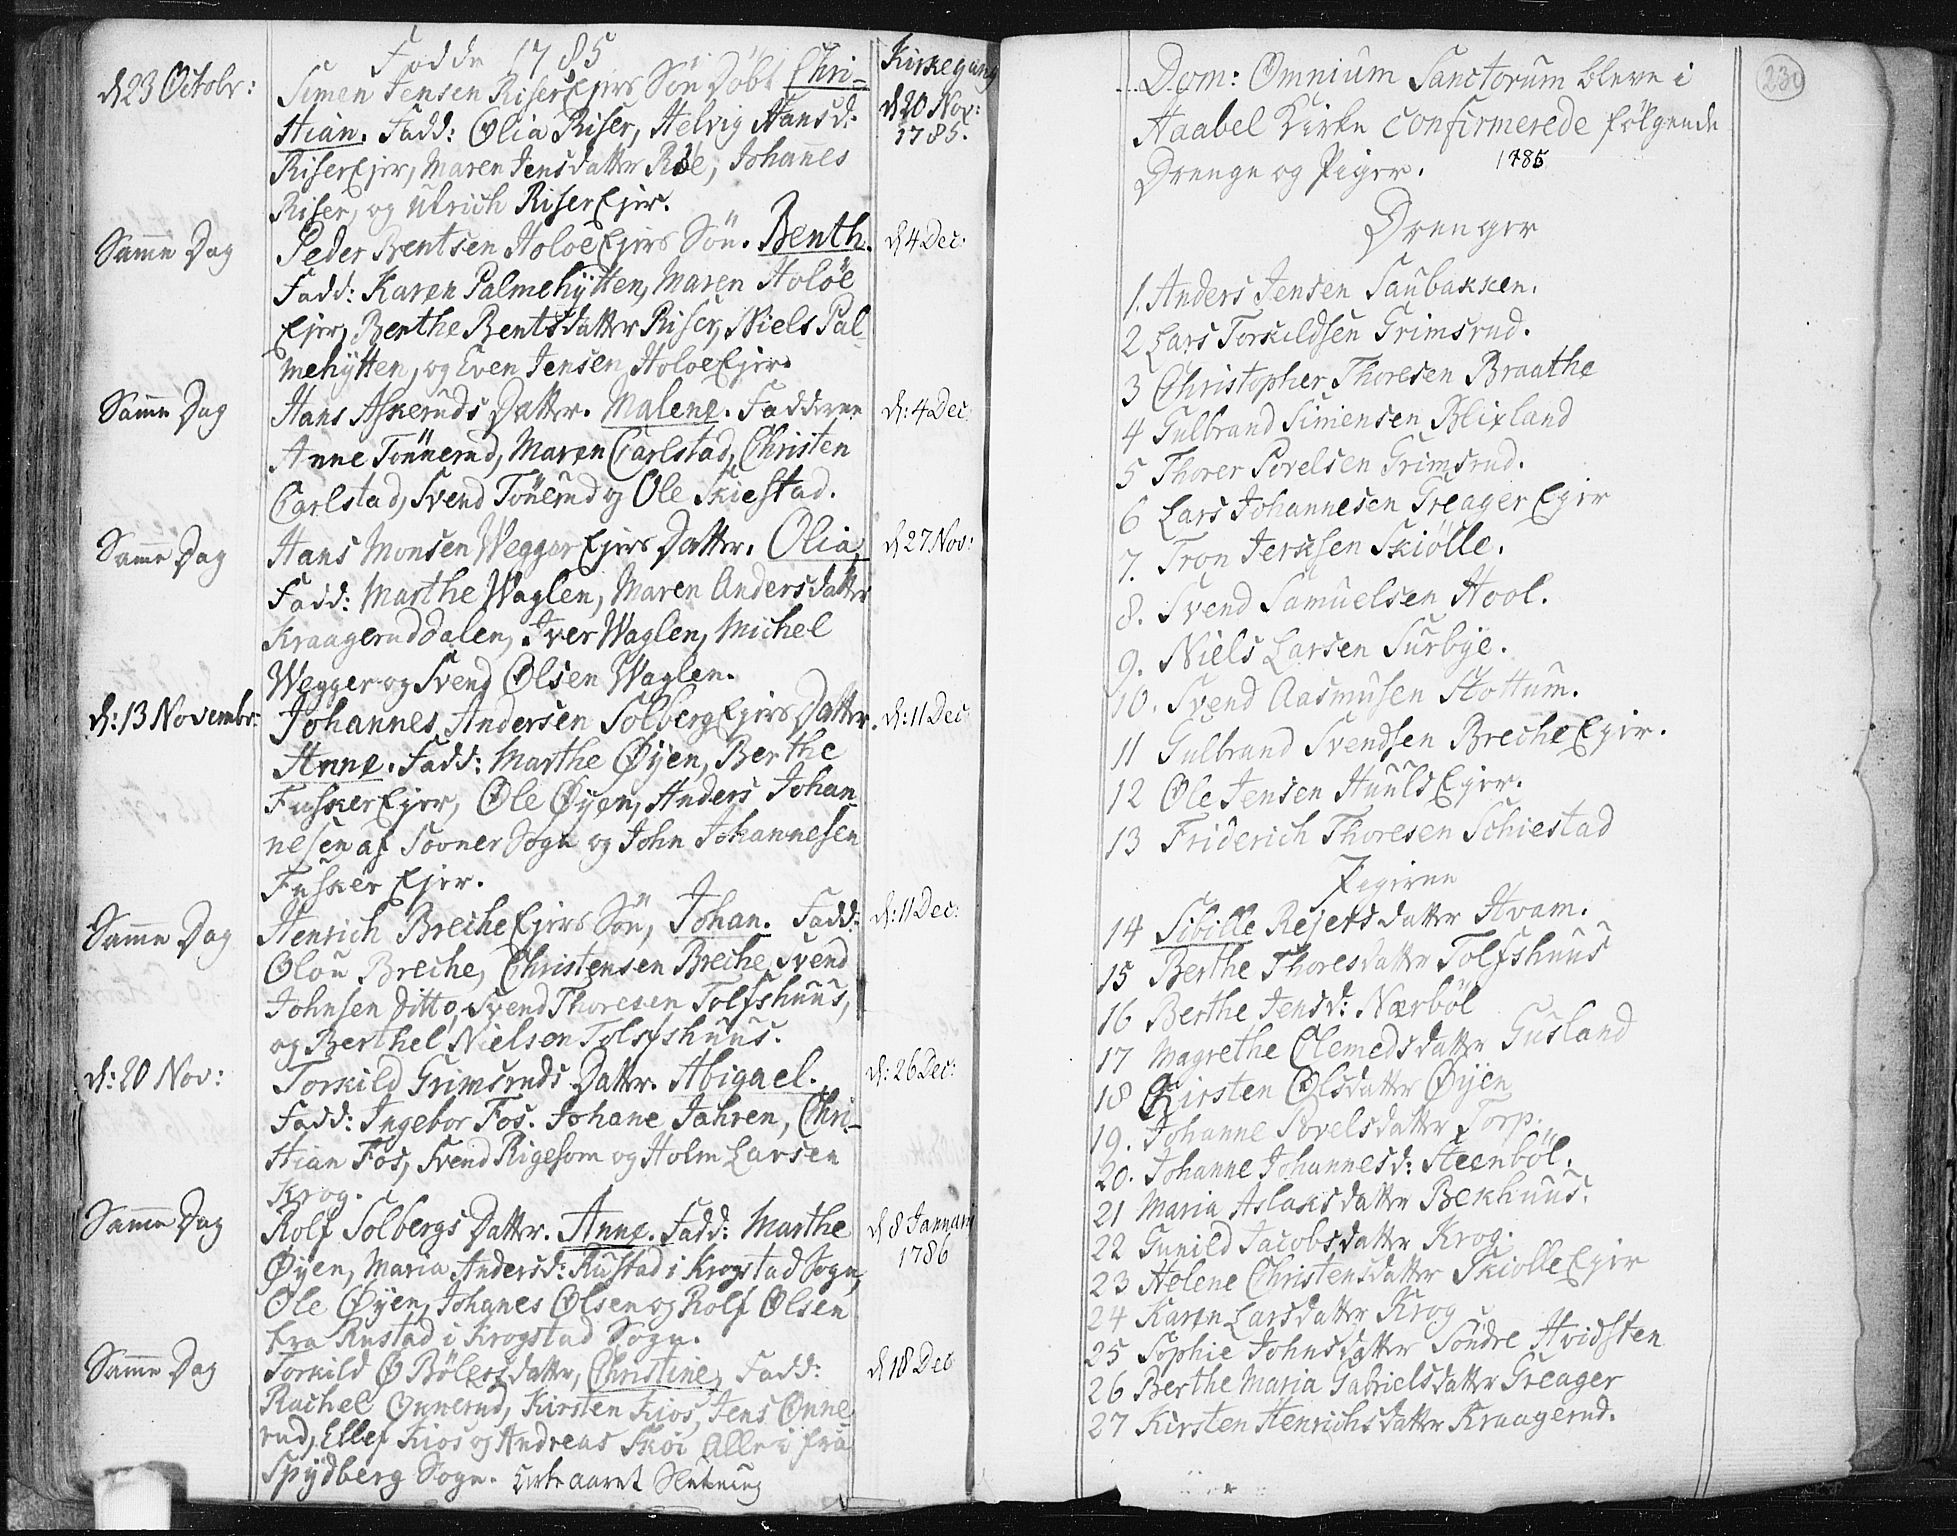 Fødde 1785
Kirkegang
d 23 Octobr:
Simen Jensen RiserEjers Søn Døbt Chri-
d 20 Nov:
1785.
stian. Fadd: Olia Riser, Helvig Hansd:
RiserEjer, Maren Jensdatter Johanes
Riser, og Ulrich RiserEjer.
Samme Dag
Peder Bentsen HoloeEjers Søn. Benth.
d 4 Dec:
Fadd: Karen Palmehÿtten, Maren Holöe
Ejer, Berthe Bentsdatter Riser, Niels Pal-
mehÿtten, og Even Jensen HoloeEjer.
Samme Dag
Hans Askeruds Datter. Malene. Fadderne
d: 4 Dec
Anne Tönnerud, Maren Carlstad, Christen
Carlstad, Svend Tönerud og Ole Skiestad.
Samme Dag
Hans Monsen Wegger Ejers Datter. Olia,
d 27 Nov:
Fadd: Marthe Waglen, Maren Andersdatter
Kraagerüddalen, Iver Waglen, Michel
Wegger og Svend Olsen Waglen.
d: 13 Novembr:
Johannes Andersen SolbergEjers Datter.
d: 11 Dec
Anne. Fadd: Marthe Øÿen, Berthe
FuskerEjer, Ole Øÿen, Anders Johan
nesen af Sovner Sogn og John Johannesen
Fusker Ejer.
Samme Dag
Henrich BrecheEjers Søn, Johan. Fadd:
d: 11 Dec:
Olou Breche, Christensen Breche, Svend
Johnsen ditto, Svend Thoresen Tolfshuus,
og Berthel Nielsen Tolfshuus.
d: 20 Nov:
Torkild Grimsruds Datter. Abigael.
d: 26 Dec:
Fadd: Ingebor Fos. Johane Jahren, Chri-
stian Fos, Svend Rigesom og Holm Larsen
Krog.
Samme Dag
Rolf Solbergs Datter. Anne. Fadd: Marthe
d 8 Januarii
1786
Øÿen, Maria Andersd: Rustad i Krogstad Sogn,
Ole Øÿen, Johanes Olsen og Rolf Olsen
fra Rustad i Krogstad Sogn.
Samme Dag
Torkild Ø Bölersdatter, Christine, Fadd:
d 18 Dec
Rachel Onnerud, Kirsten Kios, Jens Onne
rud, Ellef Kios og Andreas Sköi Alle i fra
Spÿdberg Sogn. Kirke aaret Slutning
230
Dom: Omnium Sanctorum bleve i
Haabel Kirke confirmerede følgende
Drenge og Piger. 1785
Drenger
1. Anders Jensen Saubakken.
2 Lars Torkildsen Grimsrud.
3 Christopher Thoresen Braathe
4 Gulbrand Simensen Blixland
5 Thorer Povelsen Grimsrud.
6 Lars Johannesen Greager Ejer
7. Tron Jerksen Skiölle.
8. Svend Samuelsen Hool.
9. Niels Larsen Surbÿe.
10. Svend Aasmusen Stottum.
11 Gulbrand Svendsen BrecheEjer.
12 Ole Jensen HuulsEjer.
13 Friderich Thoresen Schiestad
Pigerne
14 Sibille Rejersdatter Hvam.
15 Berthe Thoresdatter Tolfshuus
16 Berthe Jensd: Nærböl
17 Magrethe Clemedsdatter Gusland
18 Kirsten Olsdatter Øÿen
19. Johanne Povelsdatter Torp.
20. Johanne Johannesd: Steenböl.
21 Maria Aslaksdatter Bekhuus.
22 Gunild Jacobsdatter Krog.
23 Helene Christensdatter Skiolle Ejer
24 Karen Larsdatter Krog
25 Sophie Johnsdatter Söndre Hvidsten
26 Berthe Maria Gabrielsdatter Greager
27 Kirsten Henrichsdatter Kraagerud.